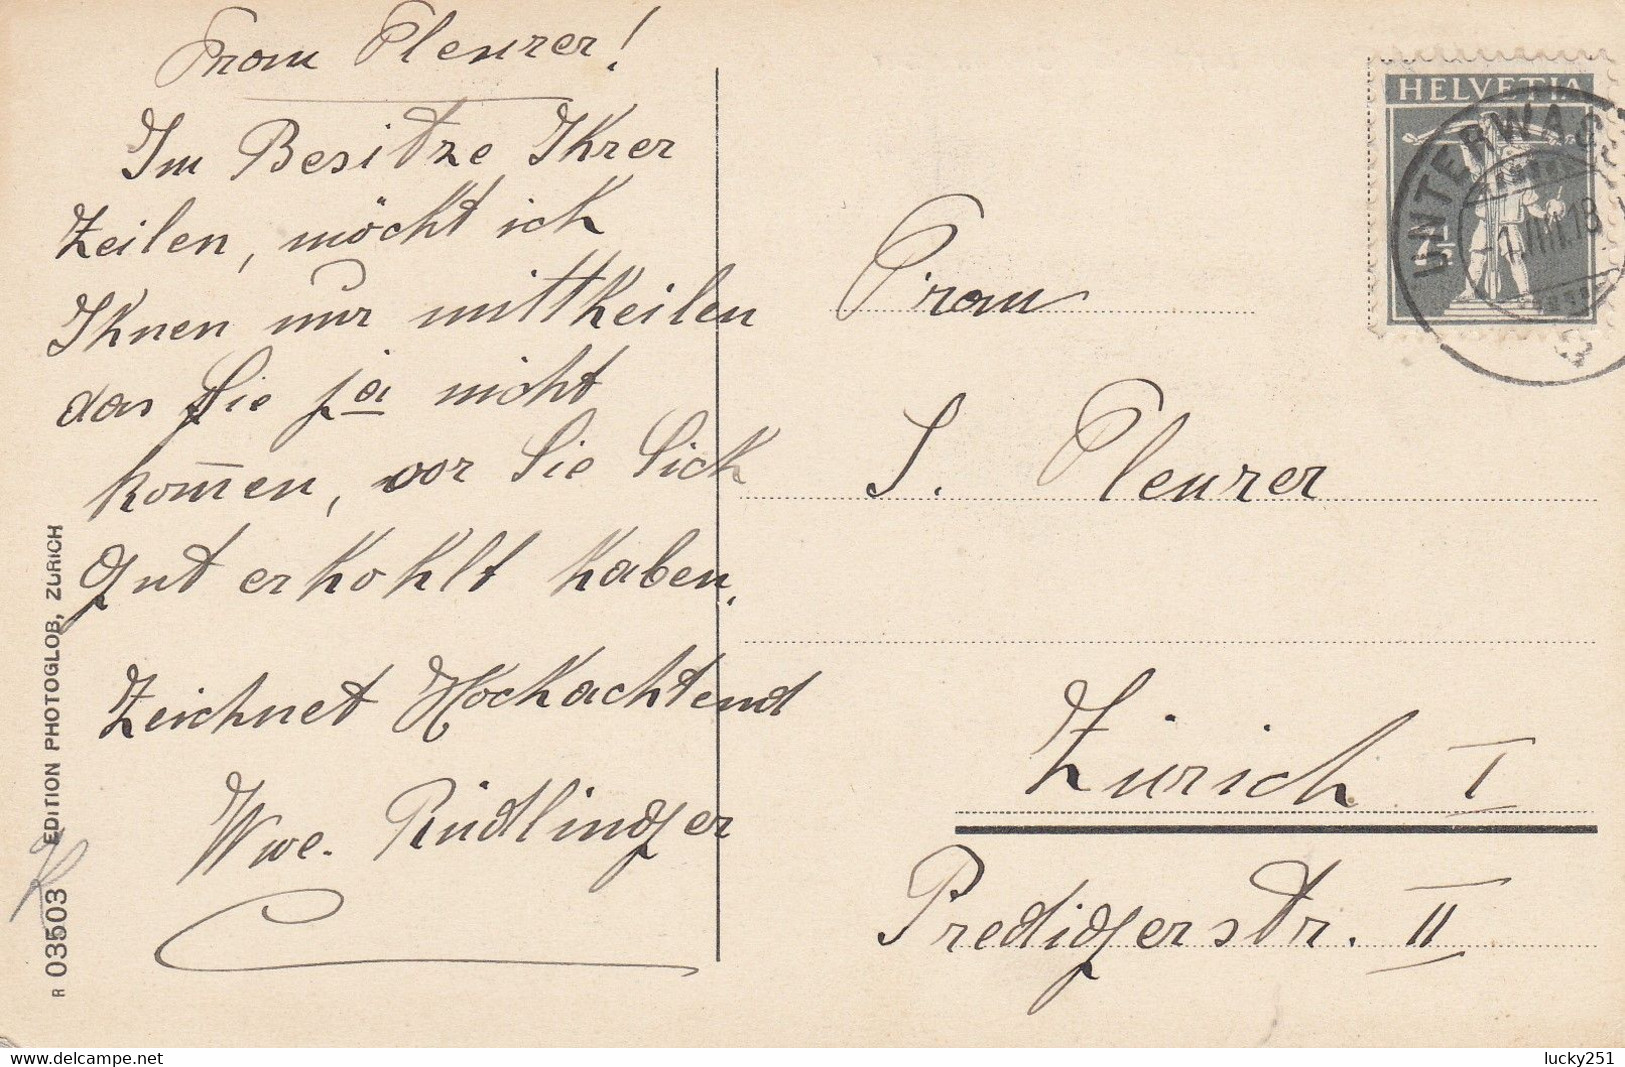 Frau Pleurer!
Im Besitze Ihrer
Zeilen, möcht ich
Ihnen nur mittheilen
das Sie ja nicht
kom̅en, vor Sie Sich
Gut erhohlt haben.
Zeichnet Hochachtend
Wwe. Rüdlinger
R 03503 EDITION PHOTOGLOB, ZÜRICH
HELVETIA
7½
UNTERWAS
-1.VIII.18
Frau
S. Pleurer
Zürich I
Predigerstr. 11
delcampe.net
lucky251